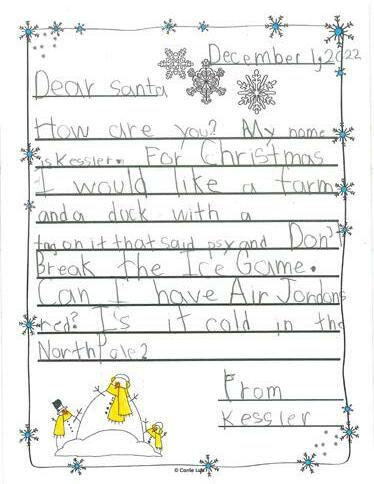 December 1, 2022
Dear Santa
How are you? My name
is Kessler. For Christmas
I would like a farm
and a duck with a
tag on it that said psy and Don't
Break the Ice Game.
Can I have Air Jordans
red? I's it cold in the
North Pole?
From
Kessler